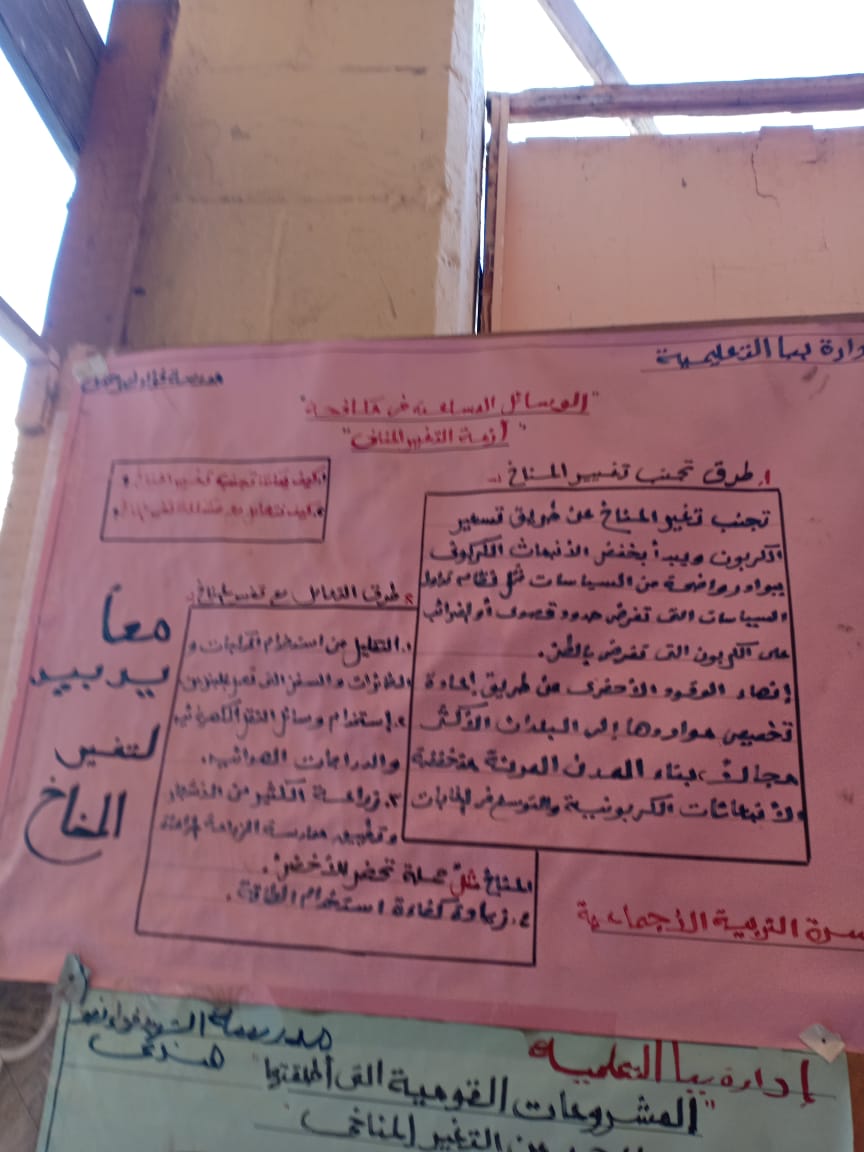 إدارة ببا التعليمية
"الوسائل المساعدة فى مكافحة"
"أزمة التغير المناخى"
١. كيف يمكننا تجنب تغير المناخ؟
٢. كيف نتعامل مع مشكلة تغير المناخ؟
١. طرق تجنب تغيير المناخ :-
تجنب تغير المناخ عن طريق تسعير
الكربون ويبدأ بخفض الأنبعاث الكربونى
من السياسات مثل نظام
السياسات التى تفرض حدود قصوى أو الضرائب
على الكربون التى تفرض بالطن.
إنهاء الوقود الأحفورى عن طريق إعادة
تخصيص مواردها إلى البلدان الأكثر
بناء المدن المرنة منخفضة
الأنبعاثات الكربونية والتوسع فى الغابات
٢. طرق التعامل مع تغير المناخ :-
١. التقليل من استخدام المركبات و
الطائرات والسفن التى
٢. إستخدام وسائل النقل الكهربائيه
والدراجات الهوائيه.
٣. زراعة الكثير من الأشجار
وتطبيق ممارسة الزراعة
المناخ مثل حملة تحضر للأخضر.
٤. زيادة كفاءة استخدام الطاقة.
معاً
لتغير
المناخ
أسرة التربية الأجماعية
إدارة ببا التعلمية
مدرسة الشهيد فؤاد
"المشروعات القومية التى أطلقتها
التغير المناخى